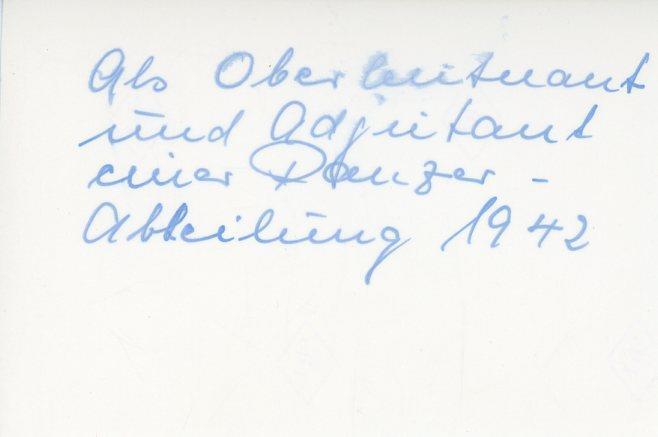 Als Oberleutnant
und Adjutant
einer Panzer -
Abteilung 1942